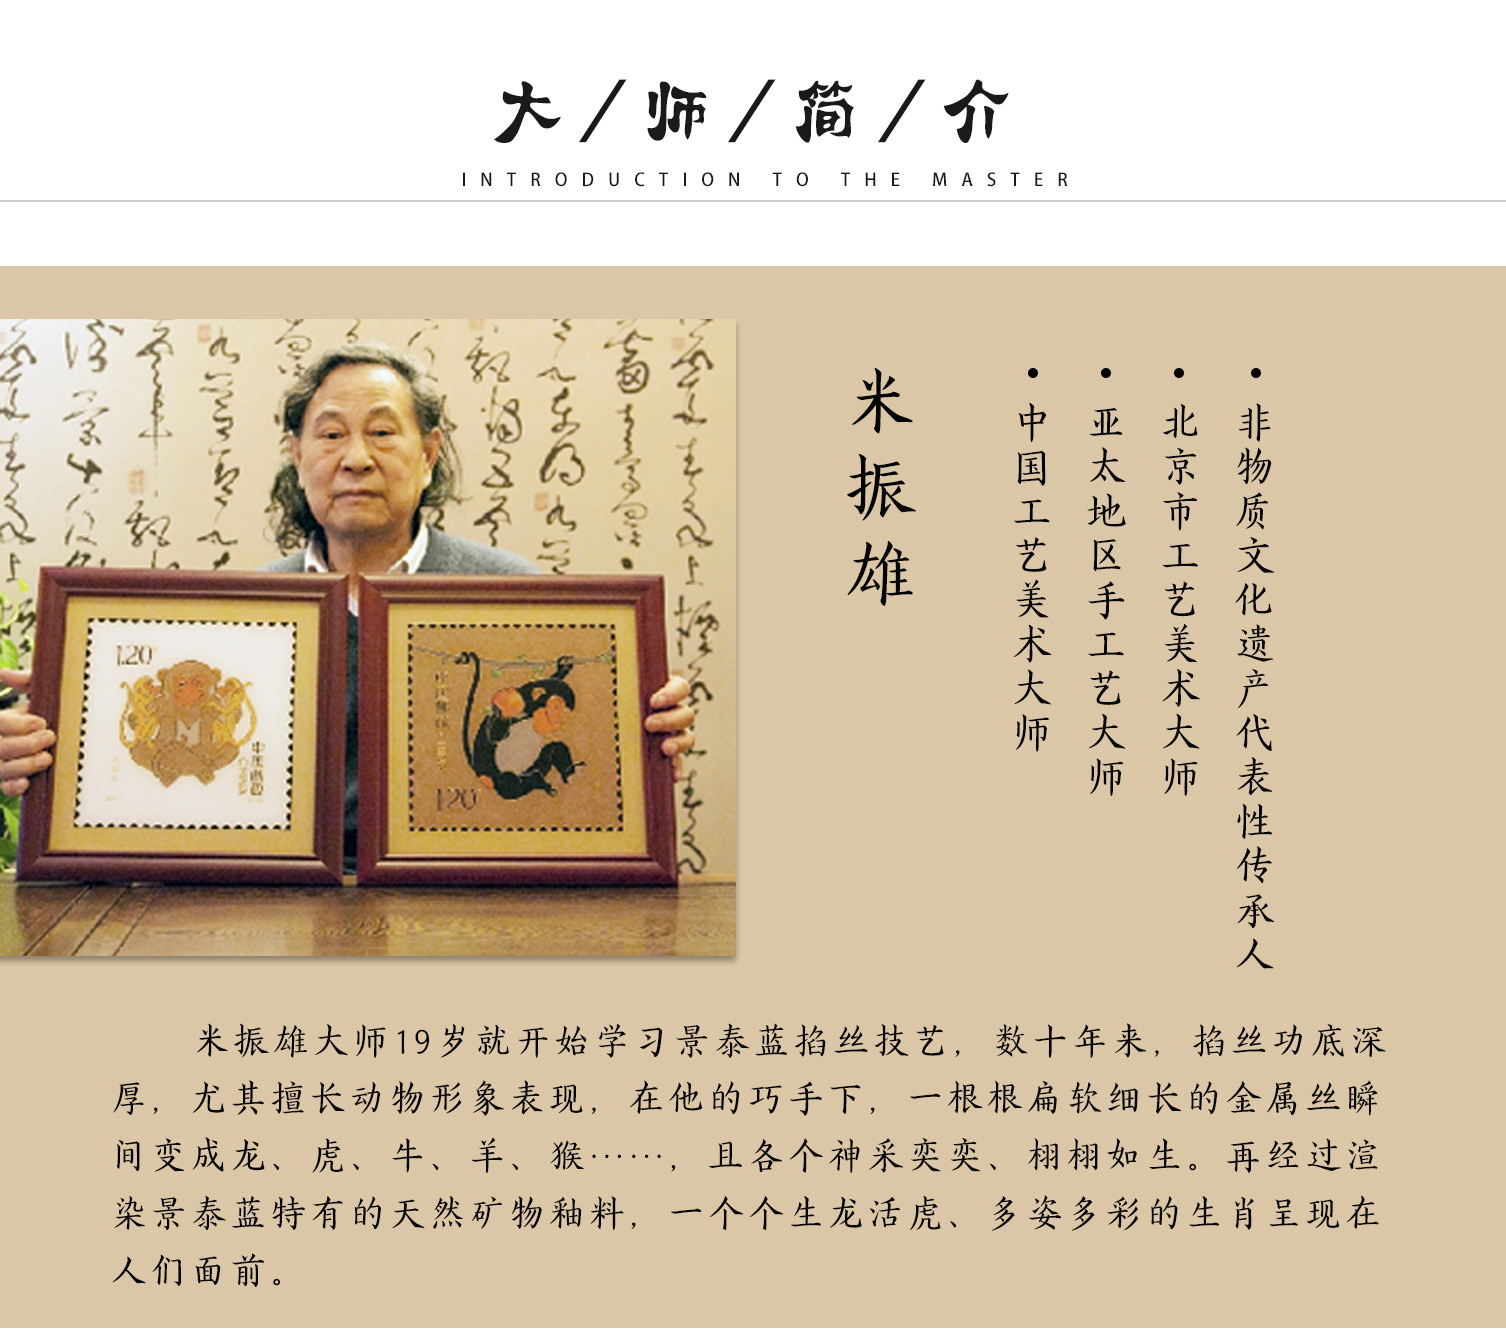 大/师/简/介
INTRODUCTION TO THE MASTER
米振雄
• 中国工艺美术大师
• 亚太地区手工艺大师
• 北京市工艺美术大师
• 非物质文化遗产代表性传承人
1.20
中国邮政
CHINA
1.20
米振雄大师19岁就开始学习景泰蓝掐丝技艺，数十年来，掐丝功底深
厚，尤其擅长动物形象表现，在他的巧手下，一根根扁软细长的金属丝瞬
间变成龙、虎、牛、羊、猴……，且各个神采奕奕、栩栩如生。再经过渲
染景泰蓝特有的天然矿物釉料，一个个生龙活虎、多姿多彩的生肖呈现在
人们面前。